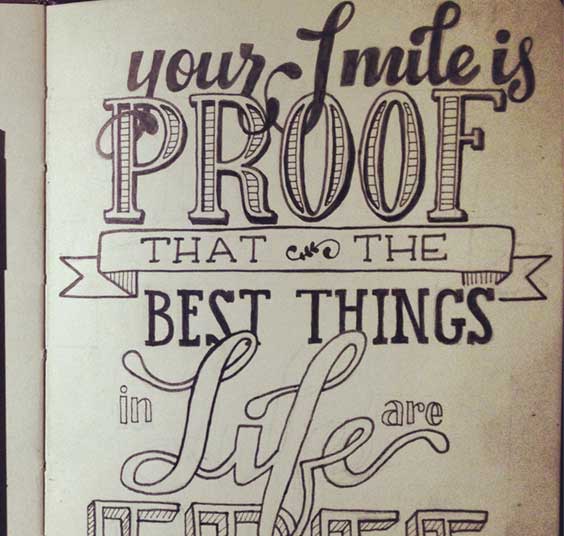 your Smile is
PROOF
THAT THE
BEST THINGS
in Life are